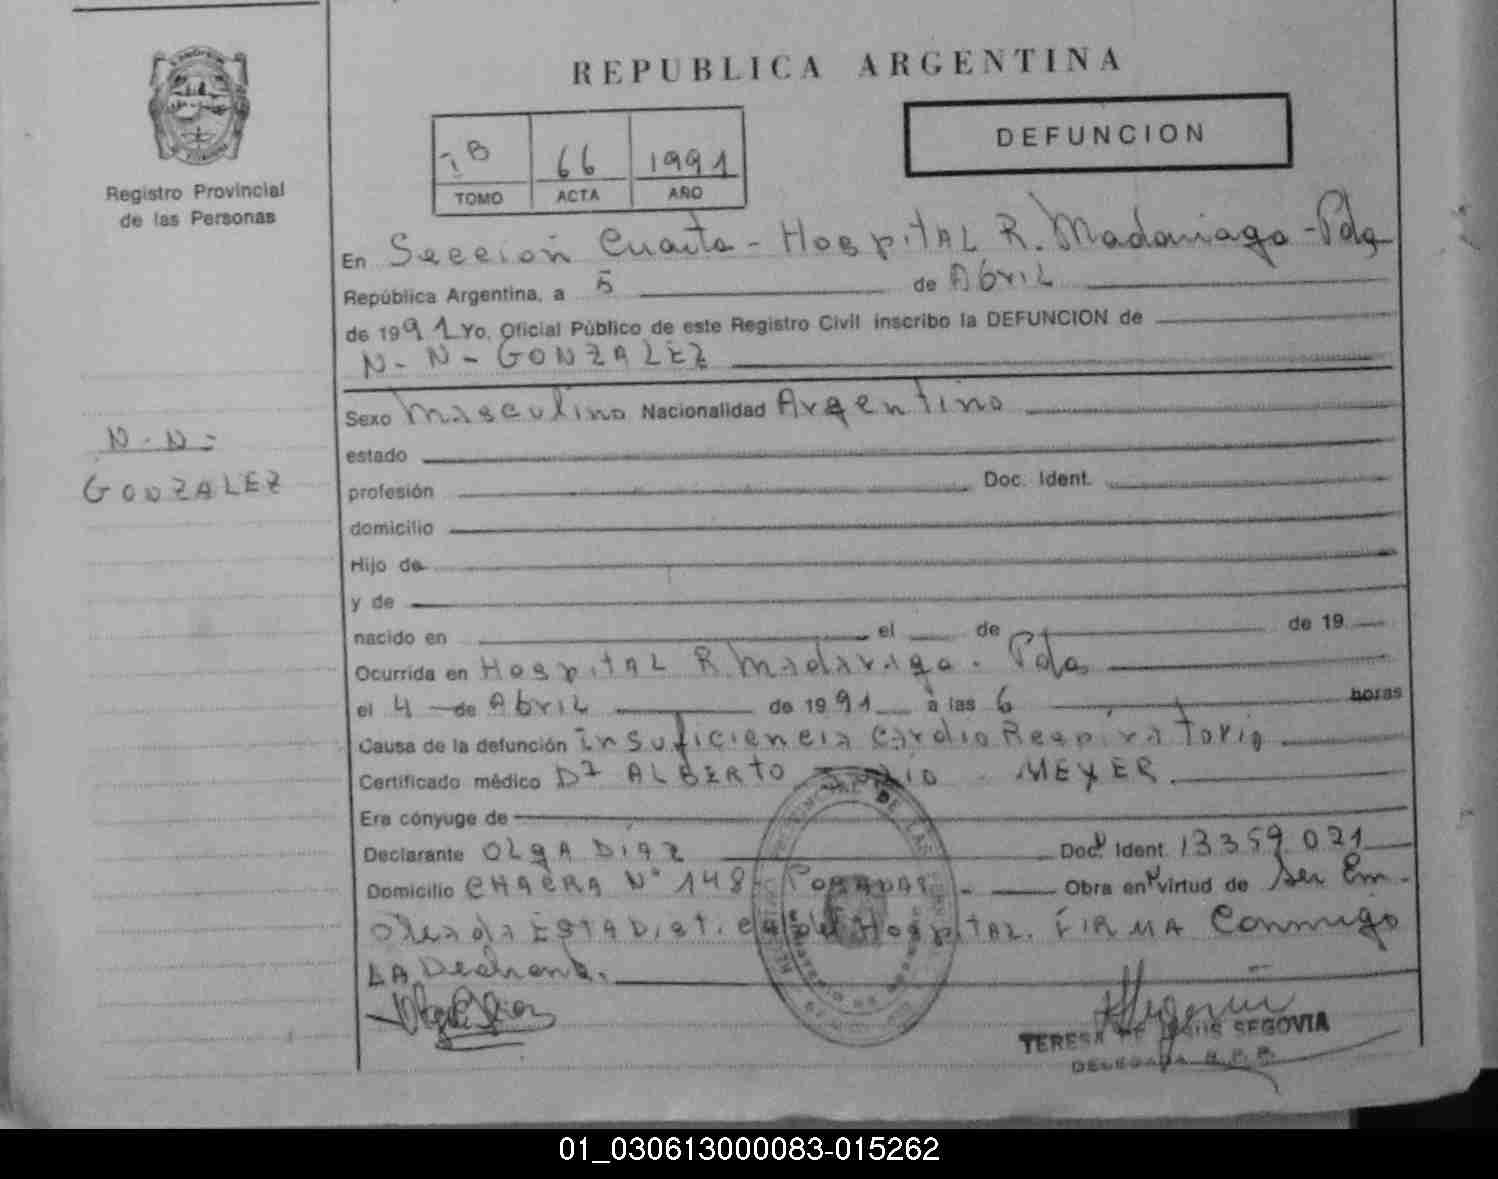 REPUBLICA ARGENTINA
DEFUNCION
66 1991
TOMO ACTA AÑO
Registro Provincial
de las Personas
En Sección Cuarta - HospitAL R. Madariaga - Pdas
República Argentina, a 5 de Abril
de 1991 Yo, Oficial Público de este Registro Civil inscribo la DEFUNCION de
N - N - GONZALEZ
Sexo Masculino Nacionalidad Argentino
N - N =
GONZALEZ
estado
profesión Doc. Ident.
domicilio
Hijo de
y de
nacido en el de de 19
Ocurrida en HospitAL R. Madariaga. Pdas
el 4 de Abril de 1991 a las 6 horas
Causa de la defunción insuficiencia cardio Respiratoria
Certificado médico Dr ALBERTO MEYER
Era cónyuge de
Declarante OLgA DiAZ Doc. Ident. 13359.021
Domicilio CHACRA N° 148 POSADAS - Obra en virtud de Ser Em-
EStADistica del HospitAL. FIRMA Conmigo
LA
TERESA DE JESUS SEGOVIA
DELEGADA R. P. P.
01_030613000083-015262